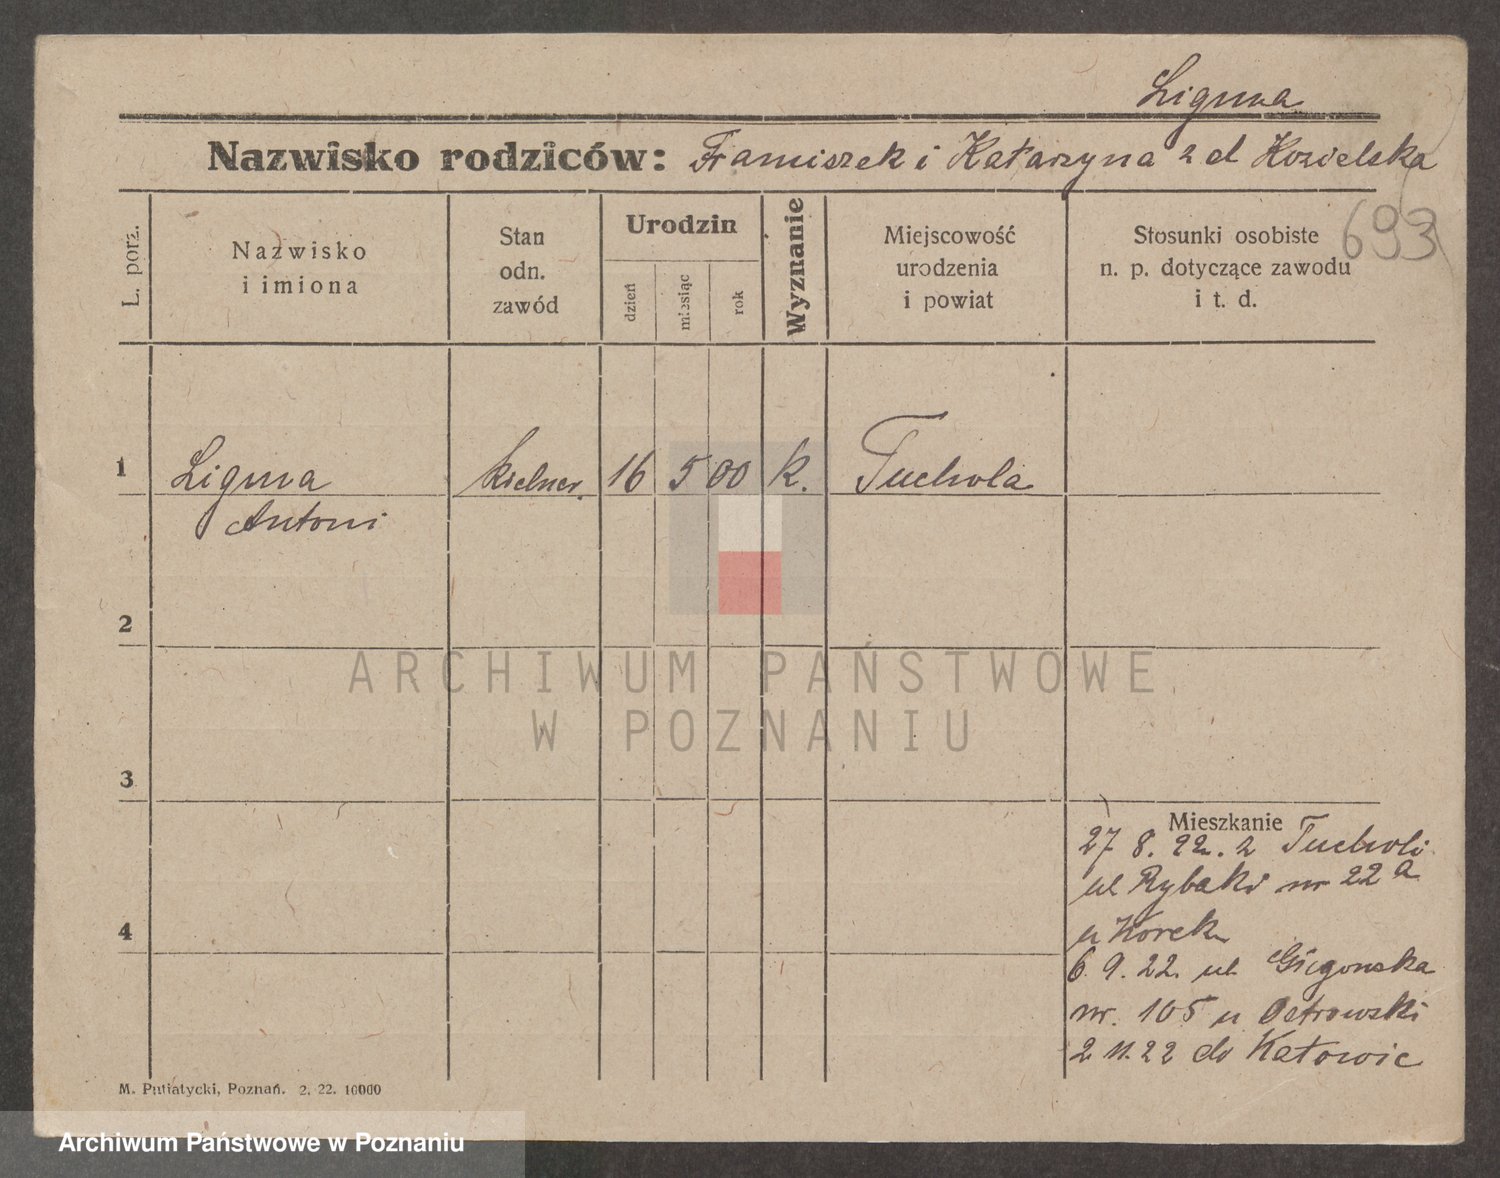 Ligma
Nazwisko rodziców: Franciszek i Katarzyna z d Kozielska
693
L. porz.
Nazwisko
i imiona
Stan
odn.
zawód
Urodzin
dzień
miesiąc
rok
Wyznanie
Miejscowość
urodzenia
i powiat
Stosunki osobiste
n. p. dotyczące zawodu
i t. d.
1
Ligma
Antoni
kielner.
16 5 00 k.
Tuchola
2
ARCHIWUM PAŃSTWOWE
W POZNANIU
3
Mieszkanie
27 8. 22. z Tucholi
ul Rybaki nr 22 a
u Korek
6. 9. 22. ul
nr. 105 u Ostrowski
2 11. 22 do Katowic
4
M. Putiatycki, Poznań. 2. 22. 10000
Archiwum Państwowe w Poznaniu